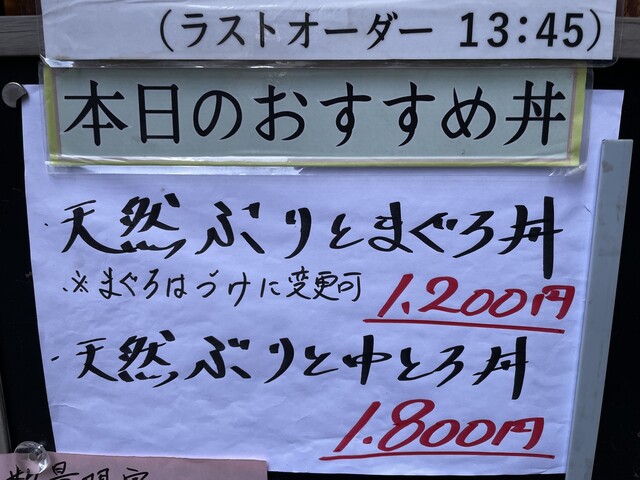 （ラストオーダー 13:45）
本日のおすすめ丼
・天然ぶりとまぐろ丼
※まぐろはづけに変更可
1,200円
・天然ぶりと中とろ丼
1.800円
数量限定